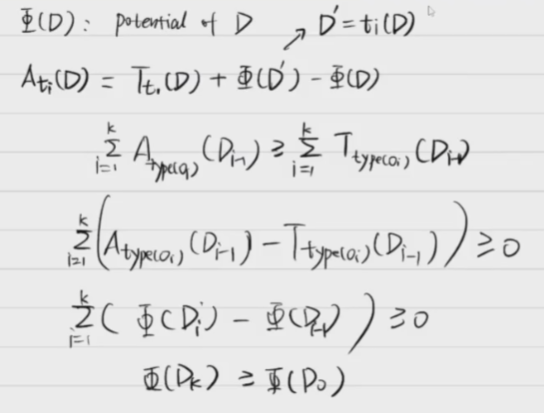 Φ(D): potential of D ↗ D' = ti(D)
Ati(D) = Tti(D) + Φ(D') - Φ(D)
∑_{i=1}^{k} A_{type(oi)}(Di-1) ≥ ∑_{i=1}^{k} T_{type(oi)}(Di-1)
∑_{i=1}^{k} (A_{type(oi)}(Di-1) - T_{type(oi)}(Di-1)) ≥ 0
∑_{i=1}^{k} (Φ(Di) - Φ(Di-1)) ≥ 0
Φ(Dk) ≥ Φ(D0)